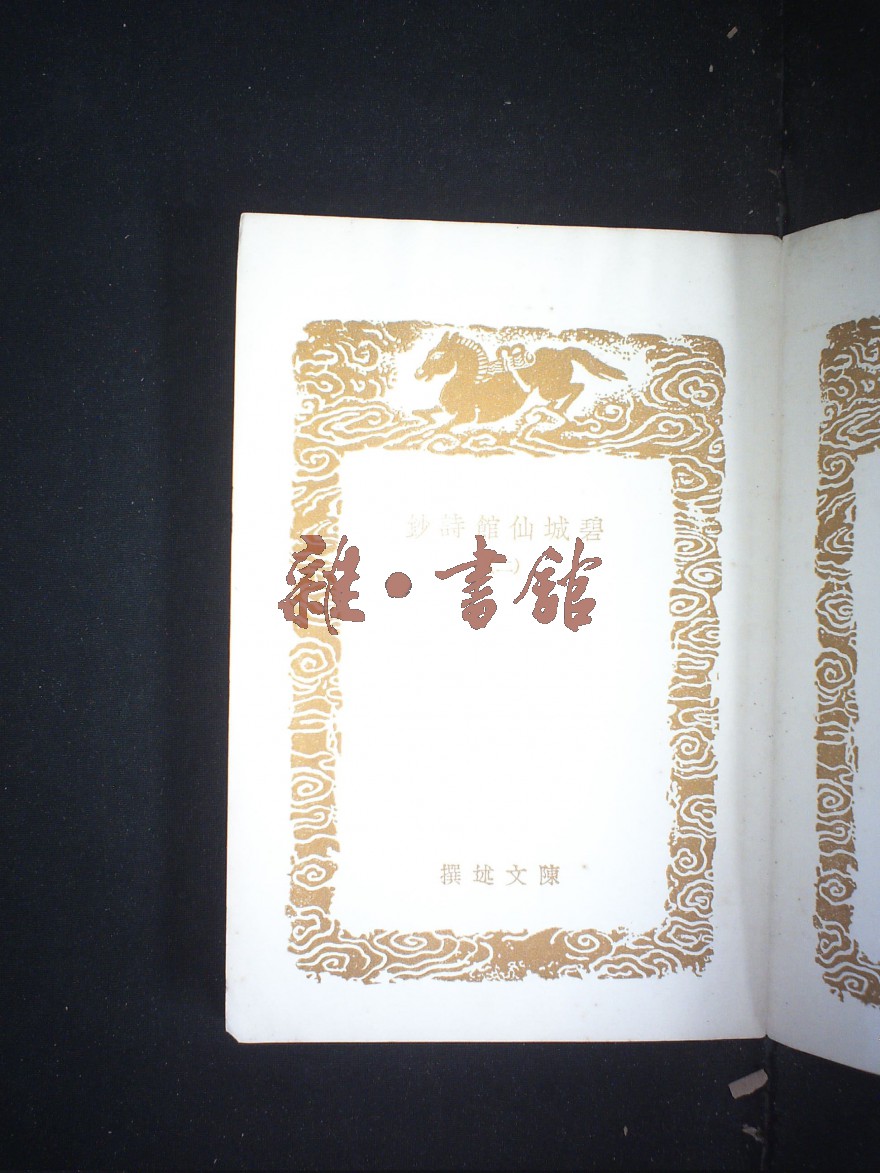 碧城仙館詩鈔
(一)
雜·書館
陳文述撰